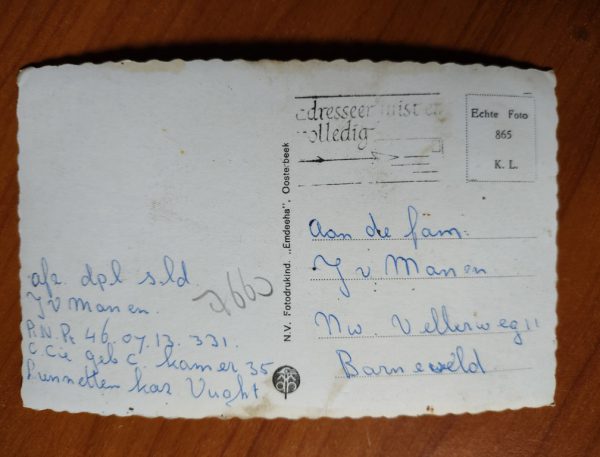 adresseer juist en
volledig
Echte Foto
865
K. L.
N.V. Fotodrukind. „Emdeeha", Oosterbeek
Aan de fam:
J v Manen
Nw. Vellerweg 11
Barneveld
afz dpl sld
J V Manen.
R.N.R. 46.07.13.331.
C. Cie geb C. kamer 35
Lunnetten kaz Vught.
7660